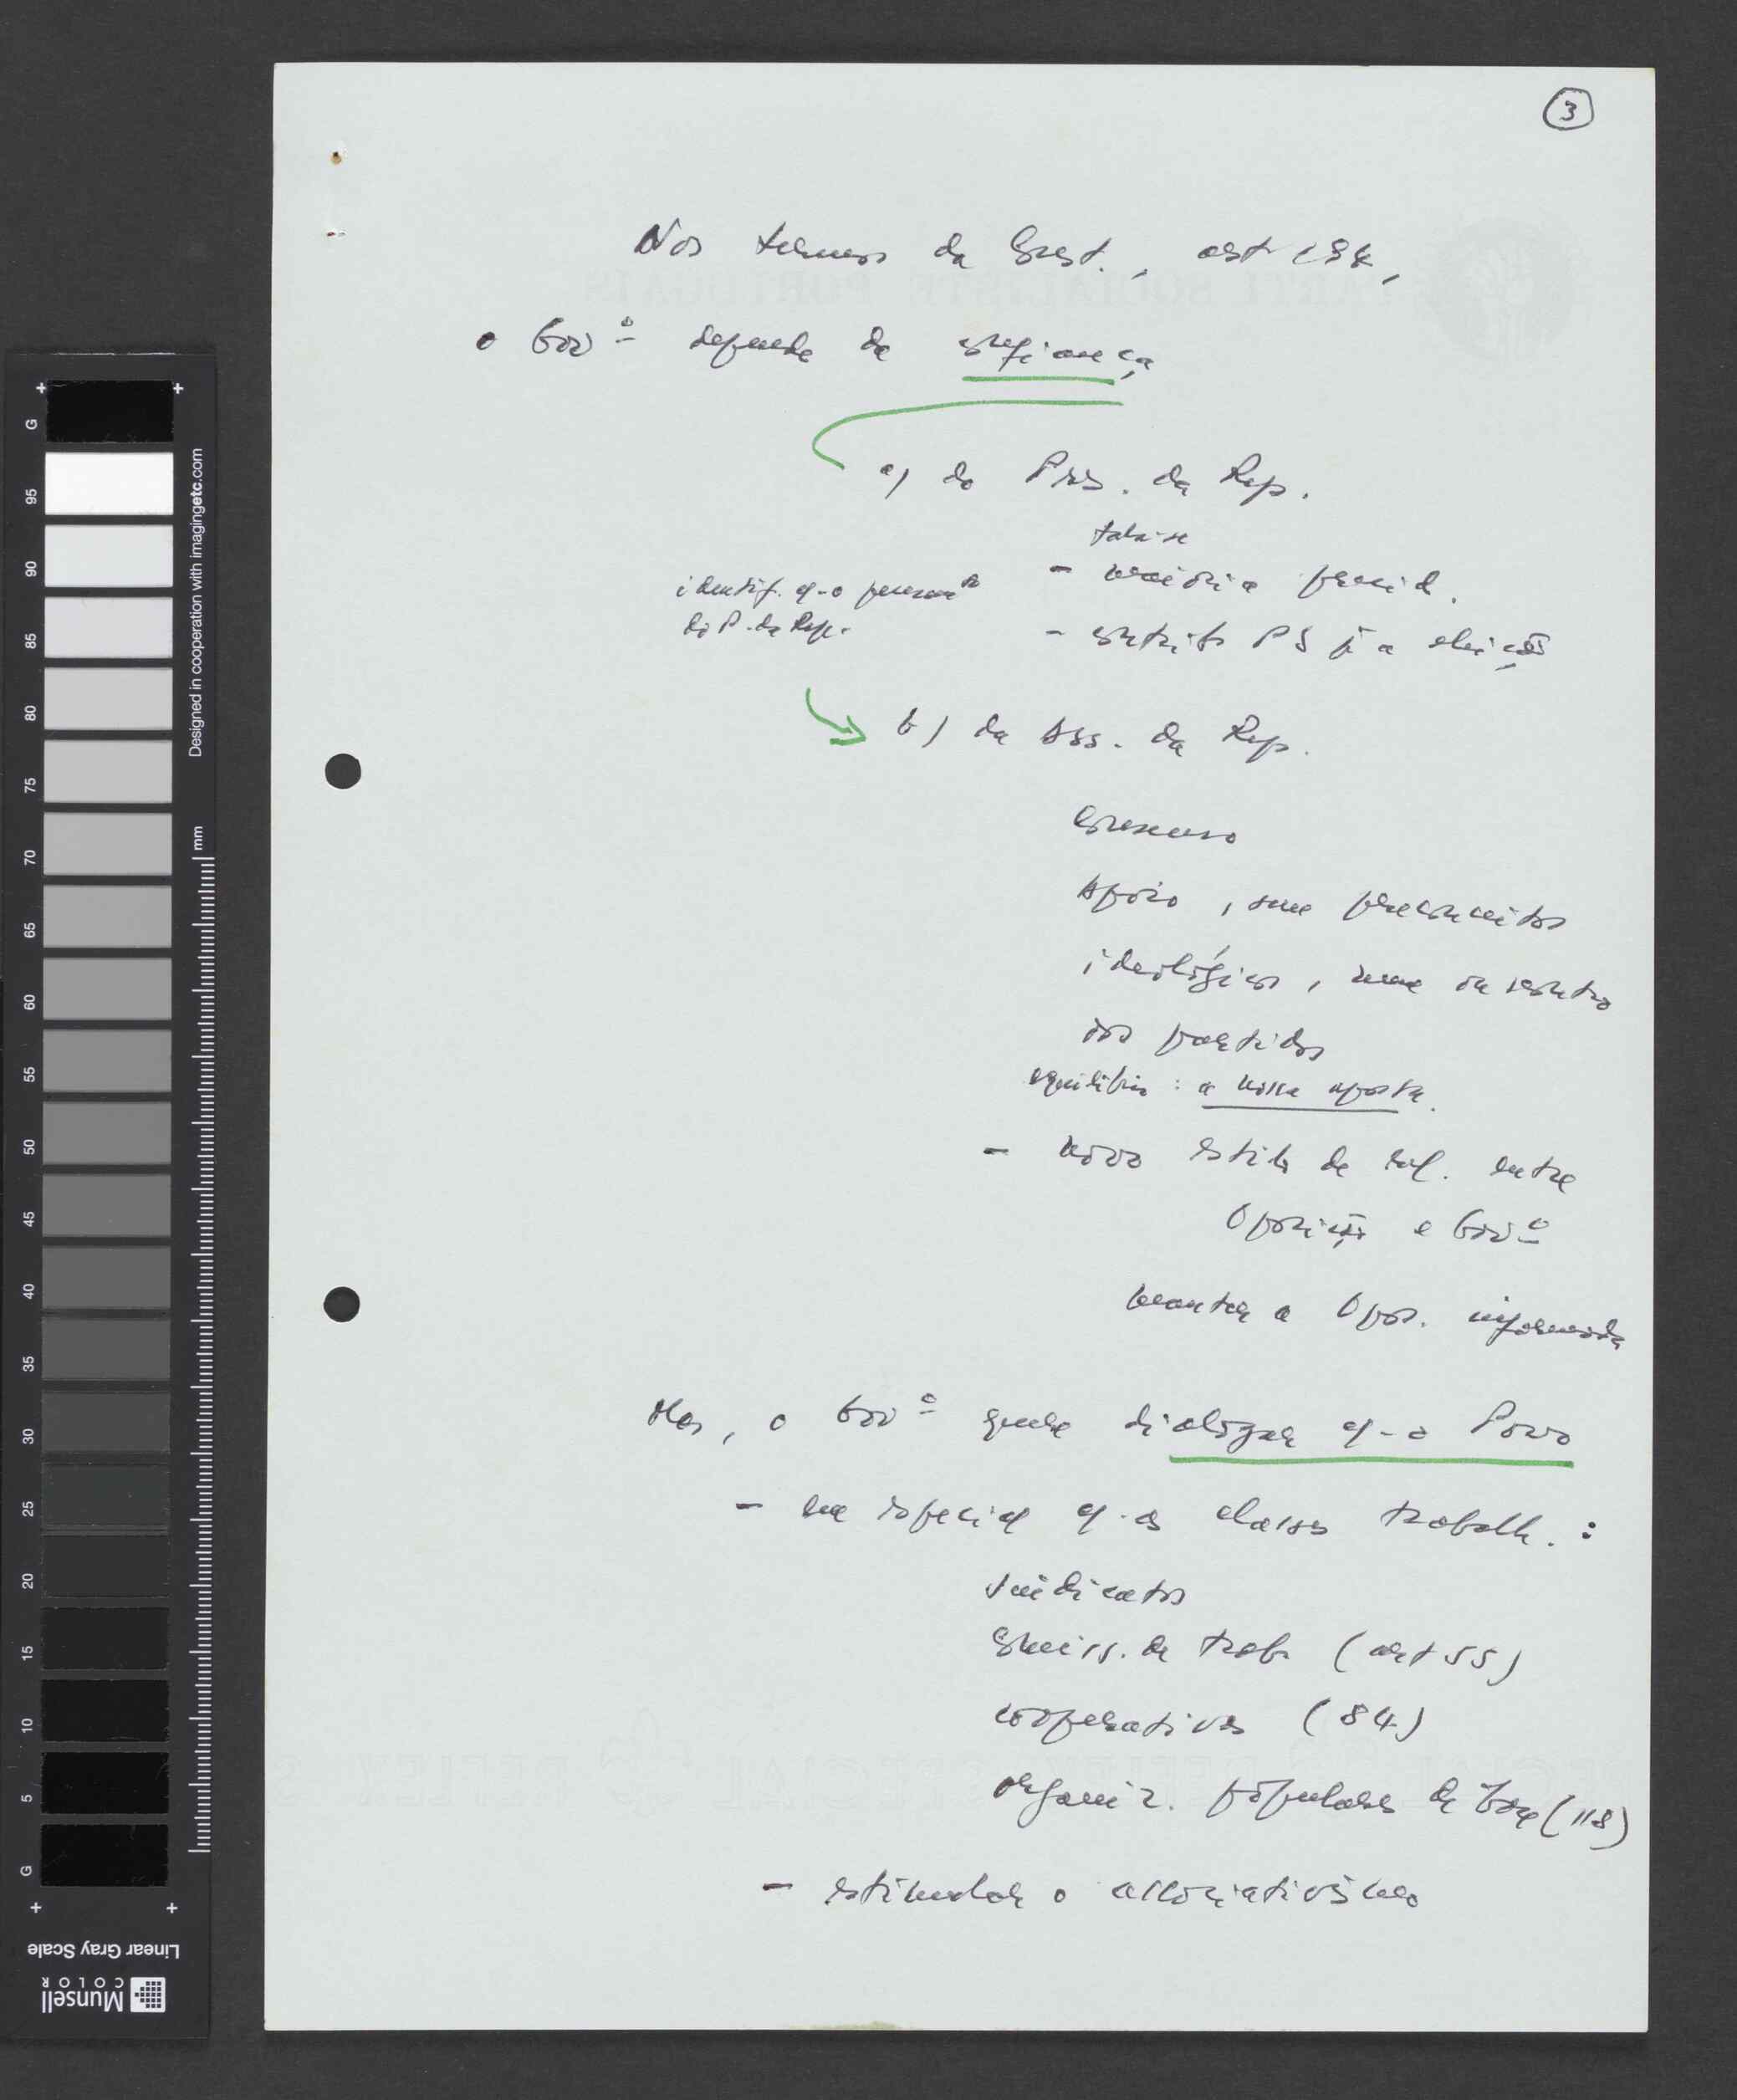 3
Nos termos da Const., art 194,
o Govº depende da confiança
a) do Pres. da Rep.
- maioria presid.
identif. c/ o pensamto
do P. da Rep.
- contrib. PS p/ a eleição
b) da Ass. da Rep.
Consenso
Apoio, sem preconceitos
ideológicos, num ou noutro
dos partidos
equilíbrio: a nossa aposta.
- novo estilo de rel. entre
Oposição e Govº
manter a Opos. informada
Mas, o Govº quer dialogar c/ o Povo
- em especial c/ as classes trabalh.:
sindicatos
Comiss. de trab. (art 55)
cooperativas (84)
organiz. populares de base (118)
- estimular o associativismo
PARTI SOCIALISTE PORTUGAIS
Designed in cooperation with imagingetc.com
mm
G 95 90 85 80 75 70 65 60 55 50 45 40 35 30 25 20 15 10 5 G
Linear Gray Scale
Munsell
COLOR